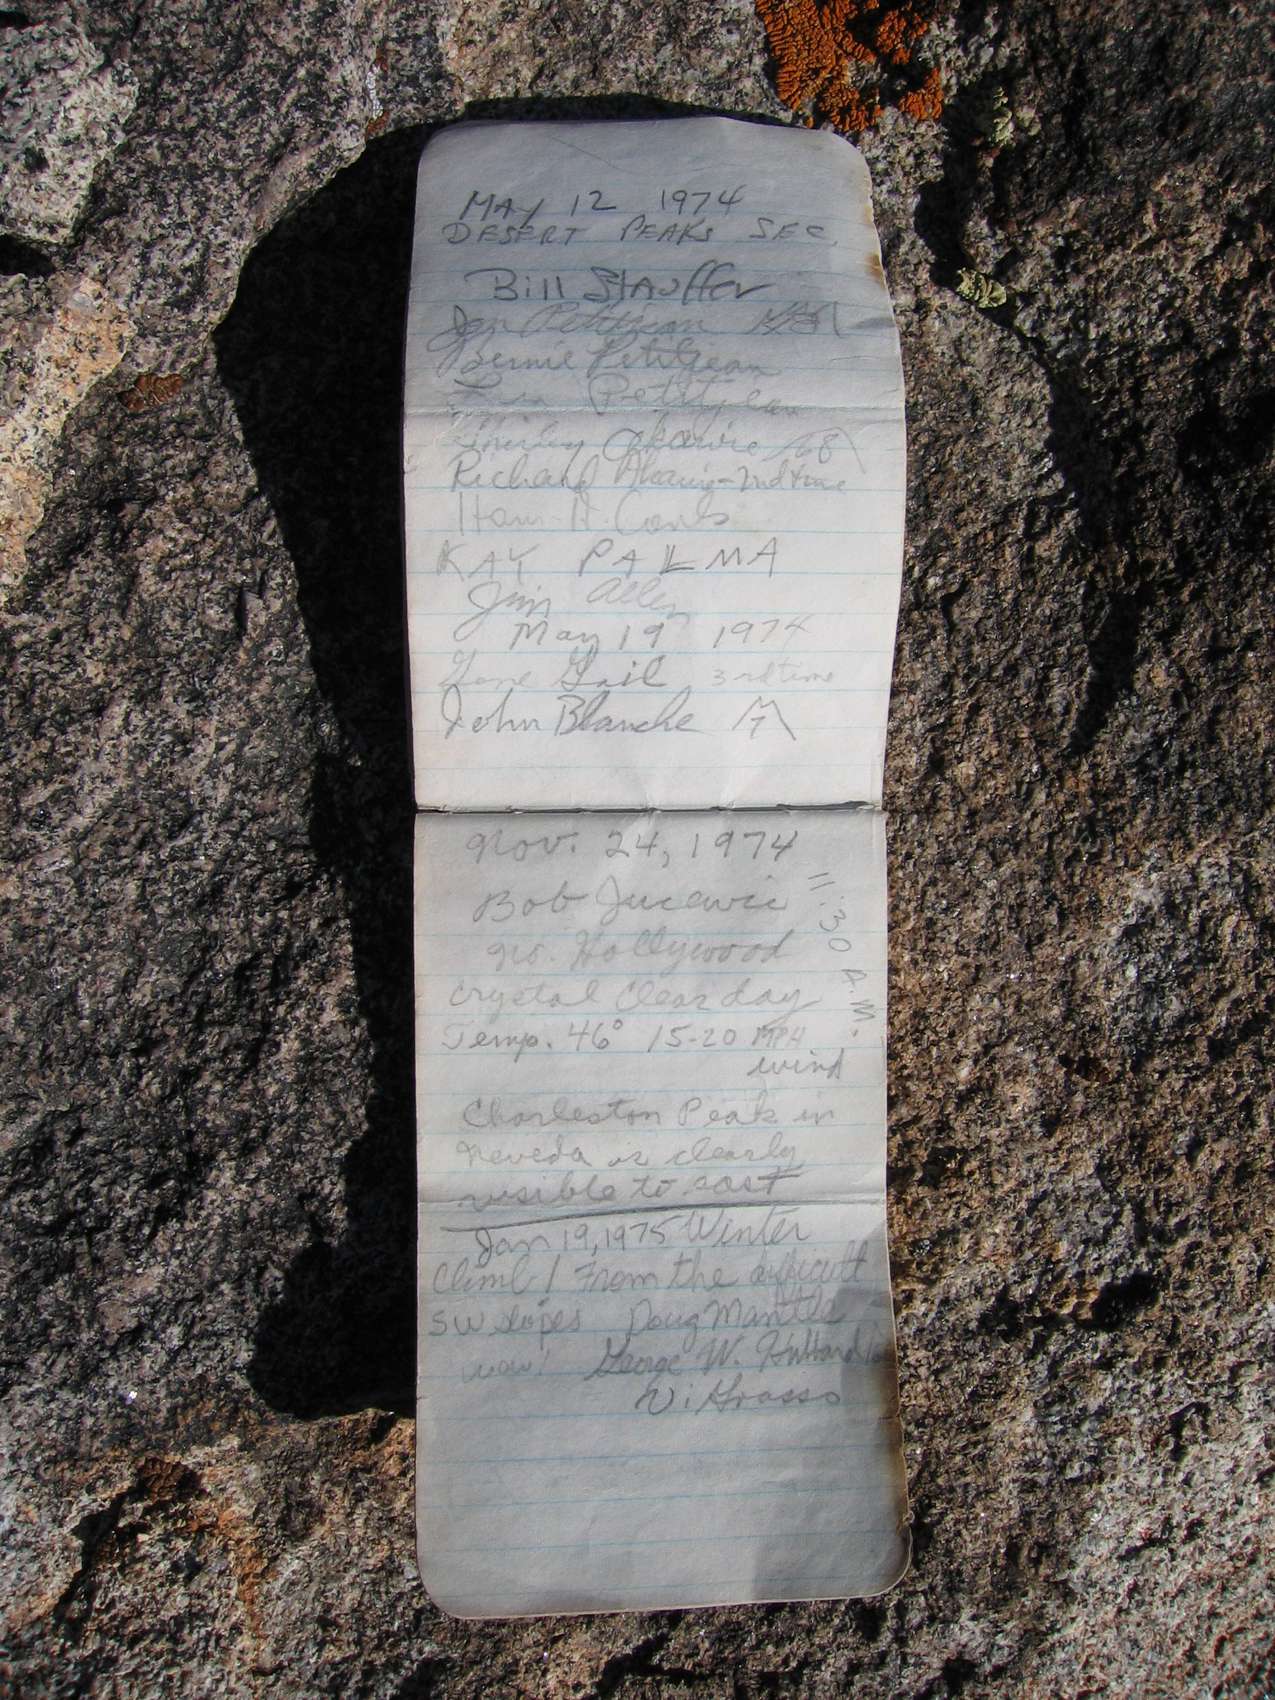 MAY 12 1974
DESERT PEAKS SEC.
Bill Stauffer
Petitjean
Bernie Petitjean
Lisa Petitjean
Shirley Akawie
Richard Akawie - 2nd time
KAY PALMA
Jim Allen
May 19 1974
Gene Gail 3rd time
John Blanche
Nov. 24, 1974
11:30 A.M.
Bob
No. Hollywood
Crystal Clear day
Temp. 46° 15-20 MPH
wind
Charleston Peak in
Nevada is clearly
visible to east
Jan 19, 1975 Winter
Climb! From the difficult
SW slopes Doug Mantle
wow! George W. Hubbard
Vi Grasso